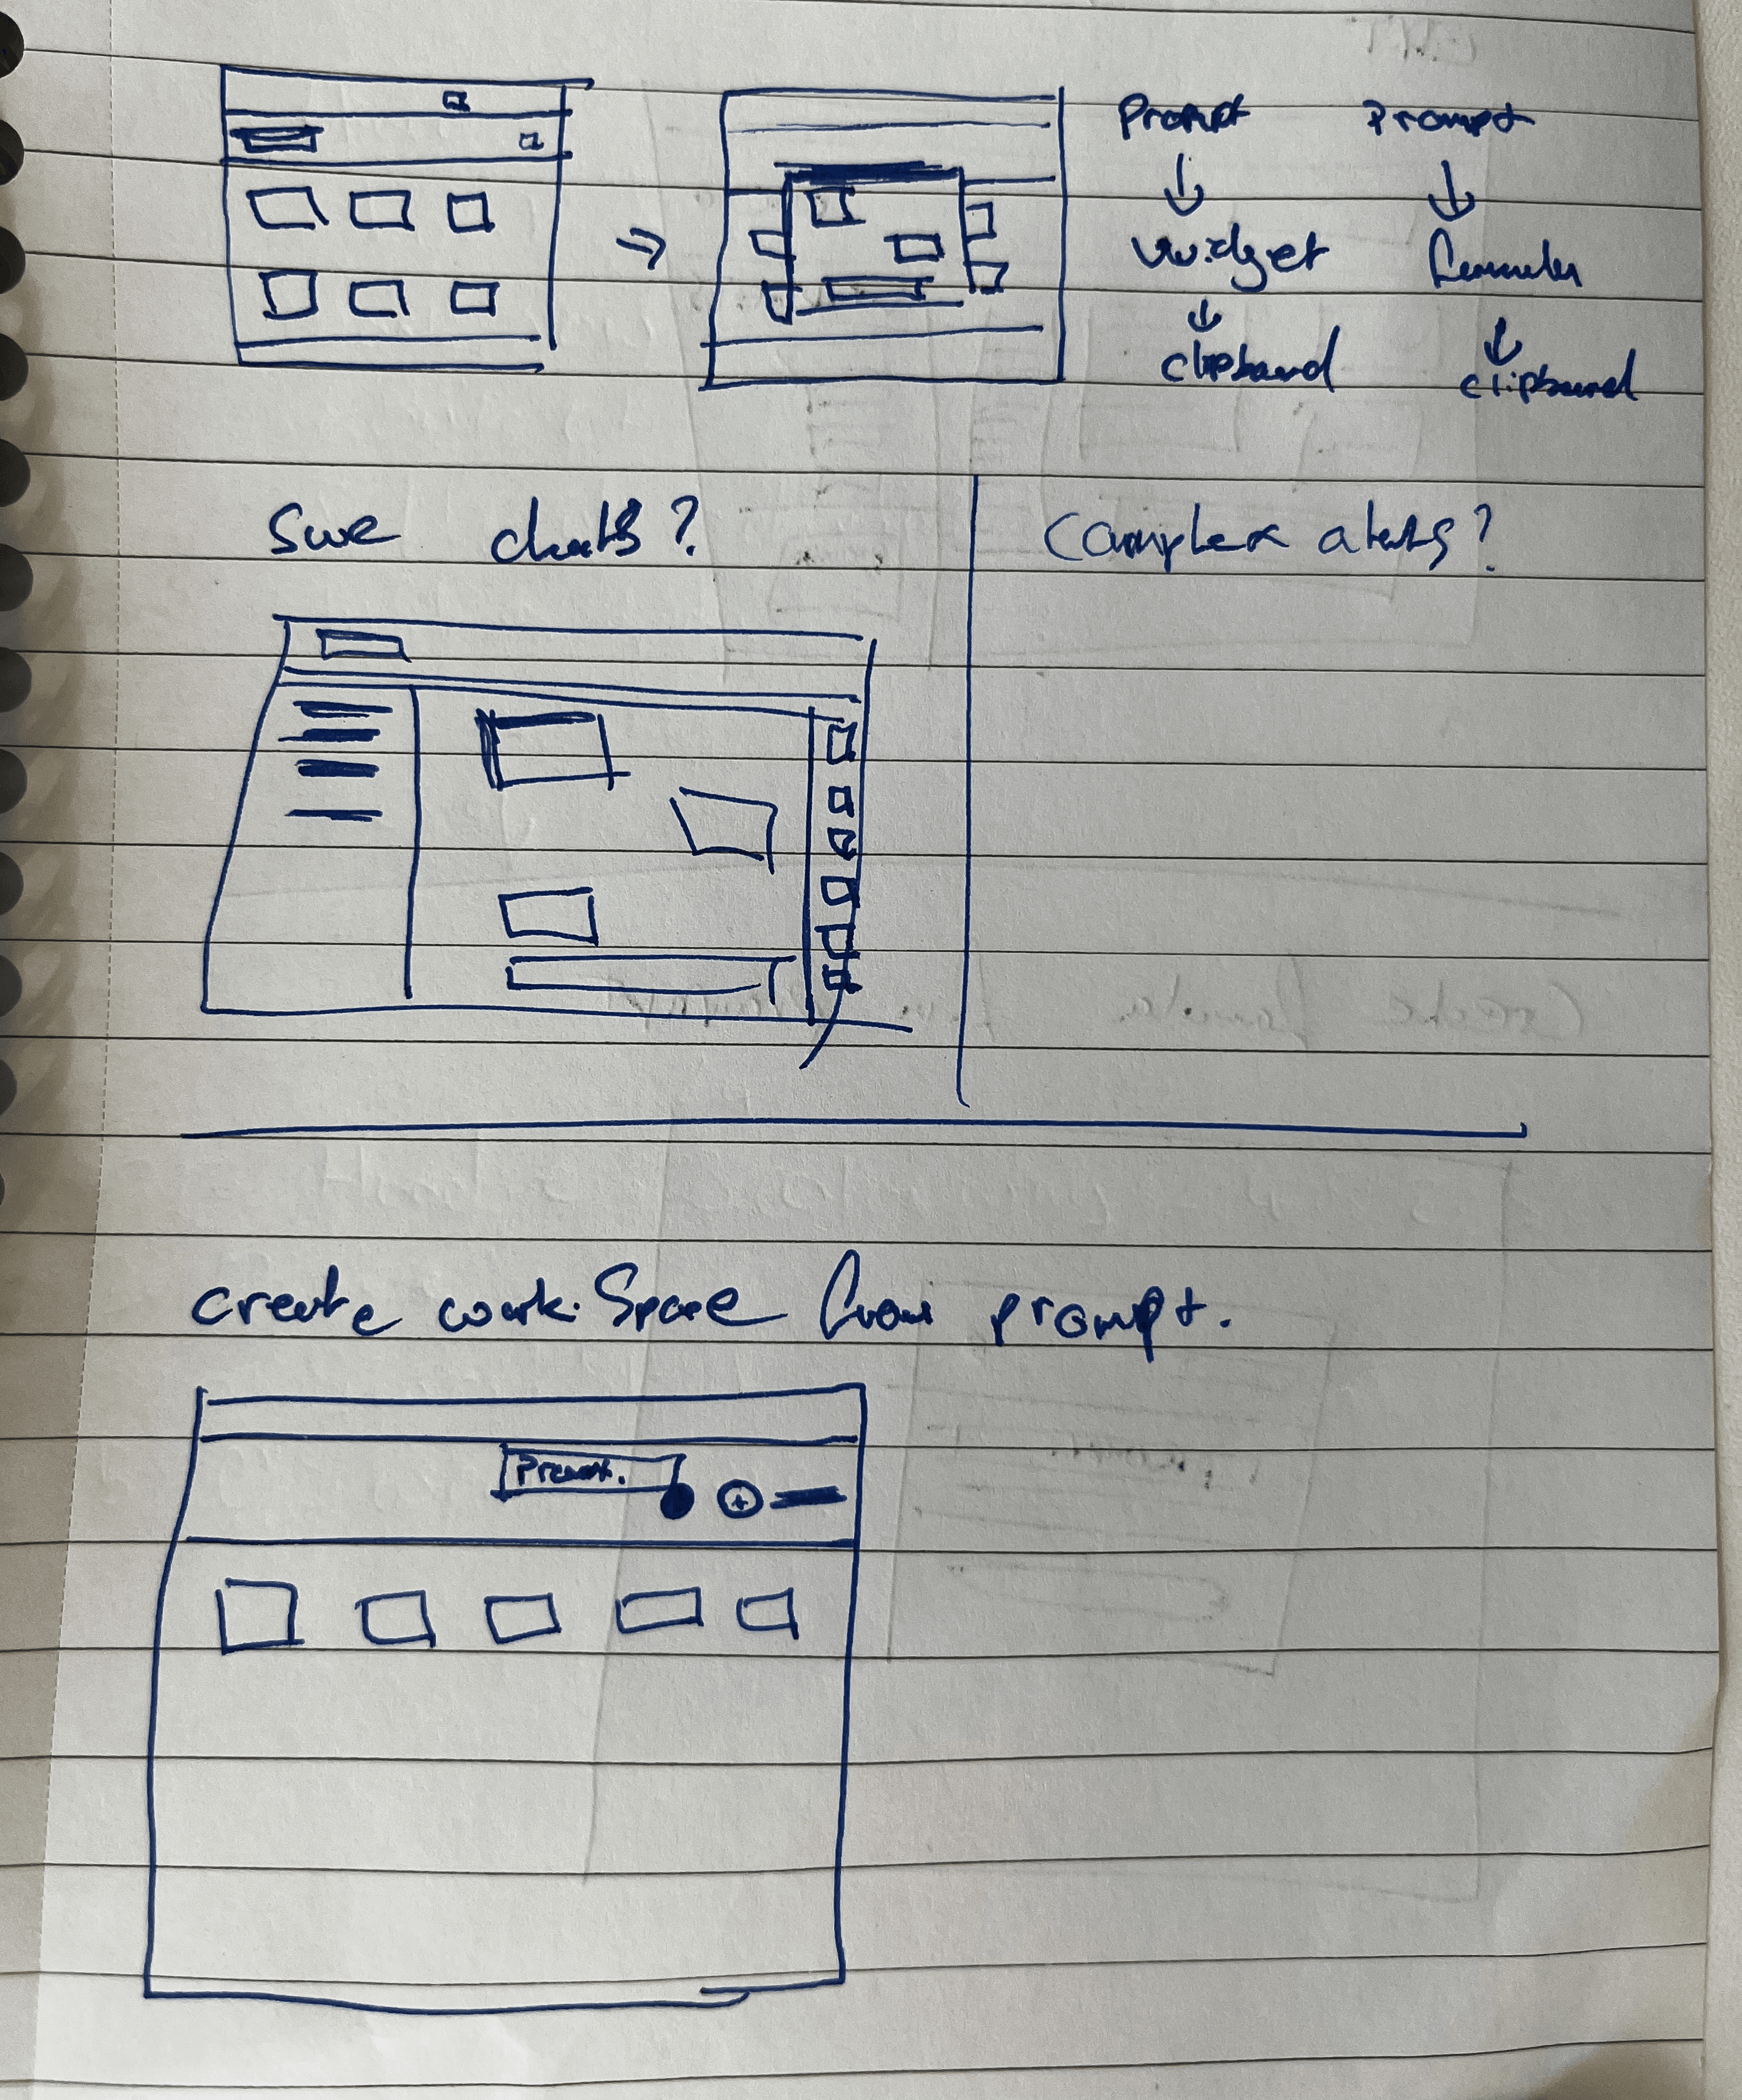 Prompt Prompt
↓ ↓
widget Formula
↓ ↓
clipboard clipboard
Save chats?
Complex alerts?
create workspace from prompt.
Prompt.